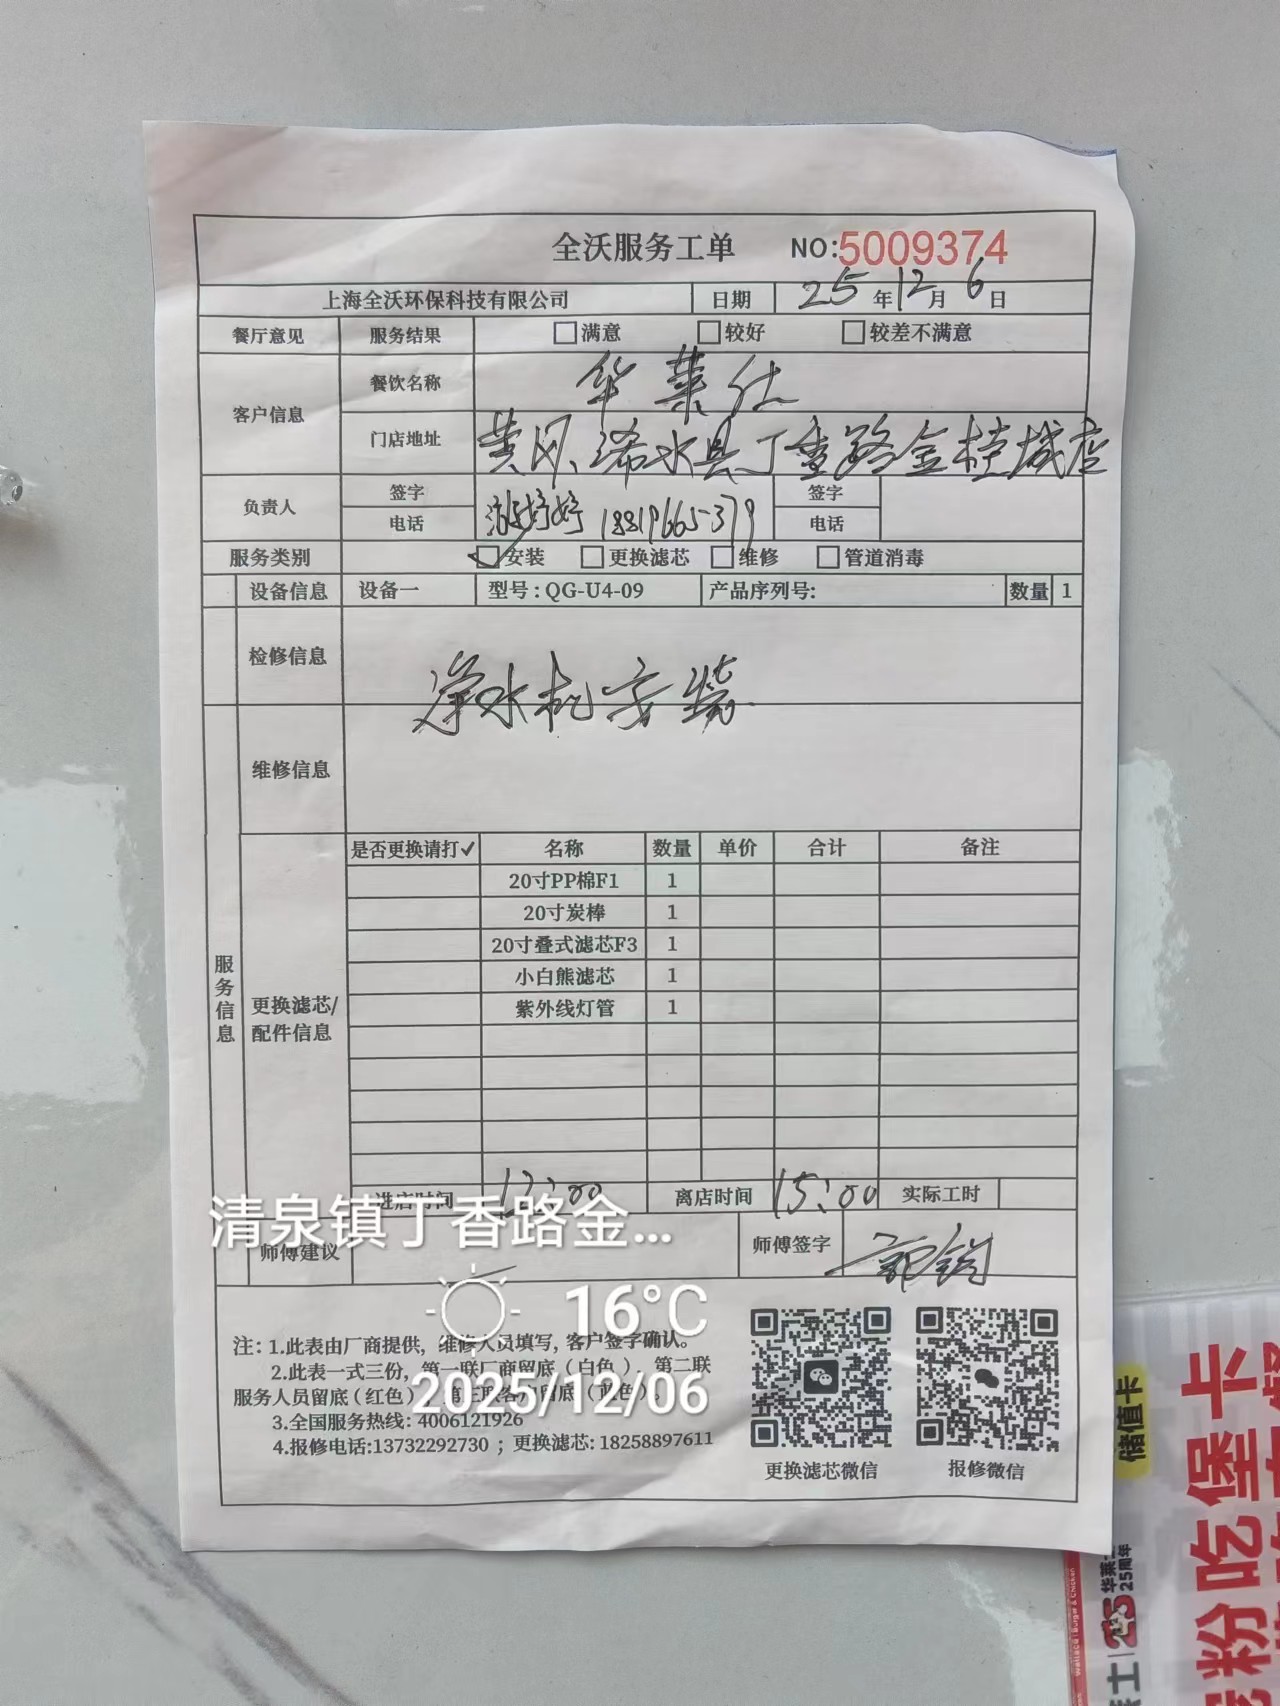 全沃服务工单 NO:5009374
上海全沃环保科技有限公司 日期 25年12月6日
餐厅意见 服务结果 □满意 □较好 □较差不满意
客户信息 餐饮名称 华莱仕
门店地址 黄冈、浠水县丁香路金桂城店
负责人 签字 游婷婷 签字
电话 18819665379 电话
服务类别 ☑安装 □更换滤芯 □维修 □管道消毒
设备信息 设备一 型号:QG-U4-09 产品序列号: 数量 1
检修信息
净水机安装
维修信息
服务信息
更换滤芯/配件信息
是否更换请打✓ 名称 数量 单价 合计 备注
20寸PP棉F1 1
20寸炭棒 1
20寸叠式滤芯F3 1
小白熊滤芯 1
紫外线灯管 1
进店时间 离店时间 15:00 实际工时
清泉镇丁香路金...
师傅建议 师傅签字
16°C
2025/12/06
注: 1.此表由厂商提供, 维修人员填写, 客户签字确认。
2.此表一式三份, 第一联厂商留底(白色), 第二联
服务人员留底(红色)
3.全国服务热线: 4006121926
4.报修电话:13732292730 ; 更换滤芯: 18258897611
更换滤芯微信 报修微信
储值卡
吃堡卡
华莱士
25周年
Wallace | Burger & Chicken